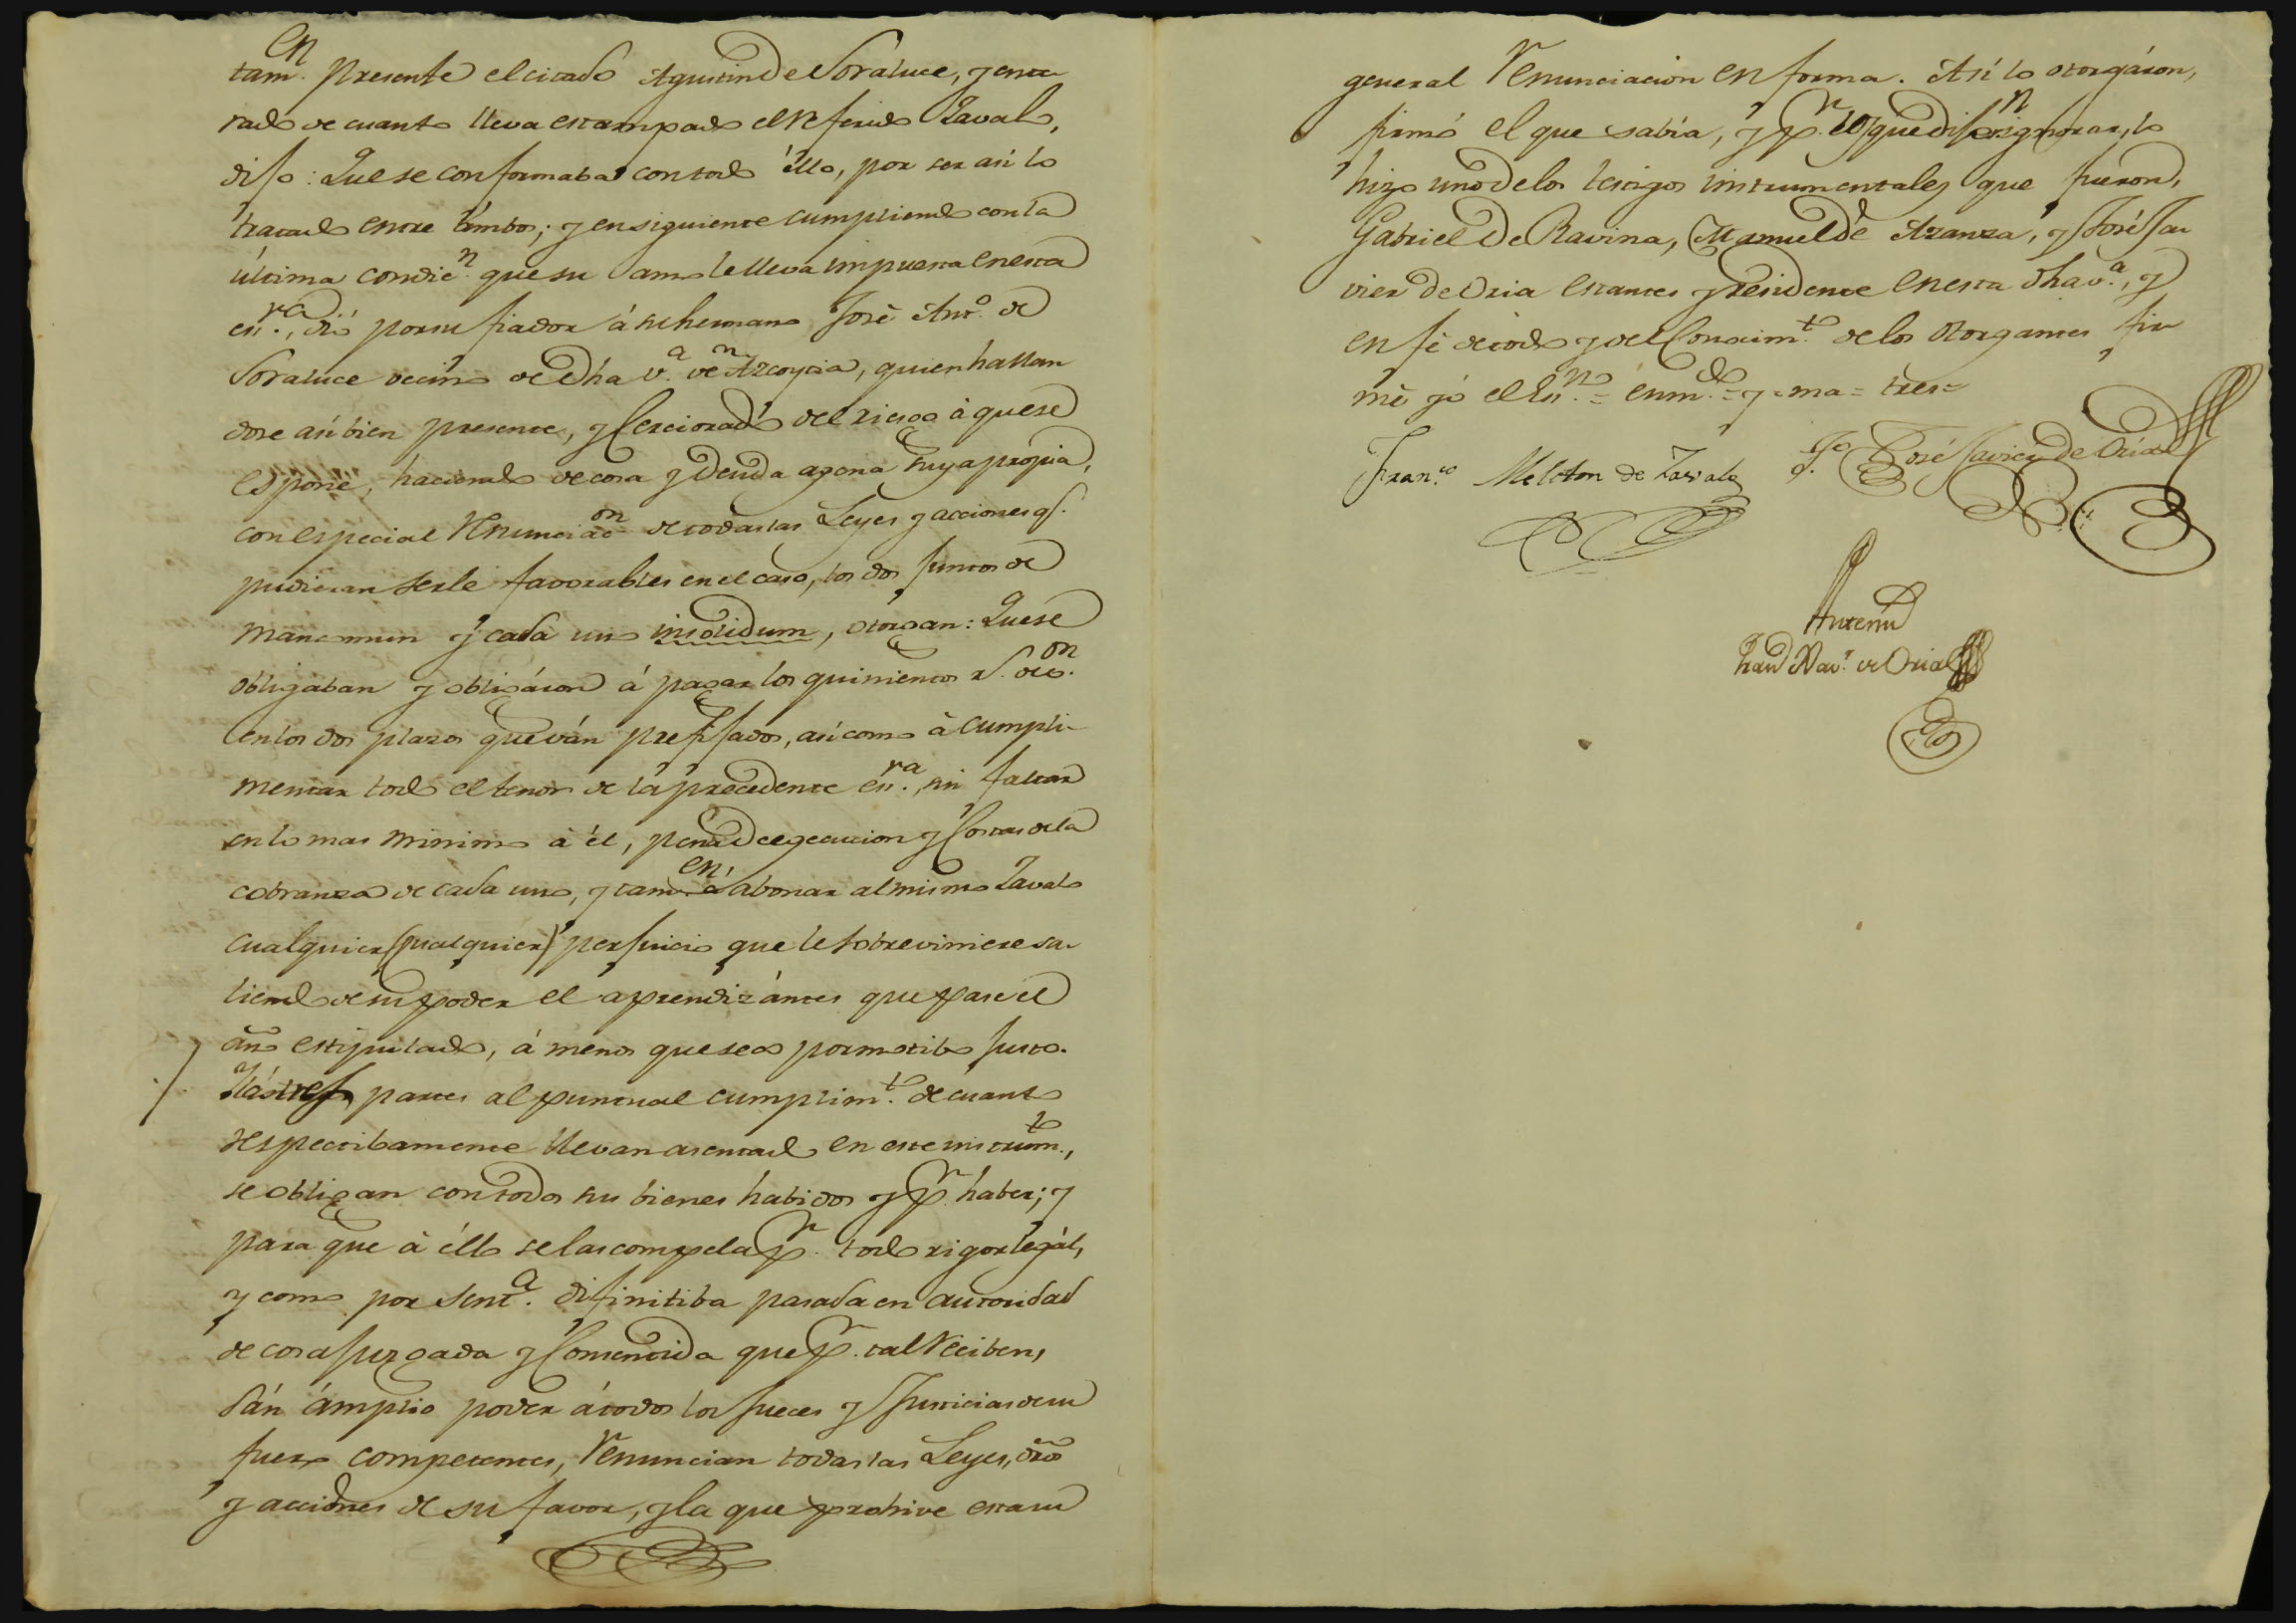 tam.en presente el citado Agustin de Soraluce, y ente
rado de cuanto lleva estampado el referido Zavalo,
dijo: Que se conformaba con todo éllo, por ser así lo
tratado entre ámbos; y en siguiente cumpliendo con la
última condic.n que su amo le lleva impuesta en esta
es.ra, dió por su fiador á su hermano José Ant.o de
Soraluce vecino de dha v.a de Azcoytia, quien hallan
dose así bien presente, y cerciorado del riesgo à que se
espone, haciendo de cosa y deuda agena suya propia,
con especial renunciac.on de todas las Leyes y acciones q.
pudieran serle favorables en el caso, los dos juntos de
mancomun y cada uno insolidum, otorgan: Que se
obligaban y obligáron á pagar los quinientos r.s de v.on
en los dos plazos que ván prefijados, así como à cumpli-
mentar todo el tenor de la precedente es.ra, sin faltar
en lo mas minimo à él, pena de egecucion y Costas de la
cobranza de cada uno, y tam.en á abonar al mismo Zavalo
cualquier (cualquier) perjuicio que le sobreviniere sa-
liendo de su poder el aprendiz ántes que pase el
año estipulado, á menos que sea por motibo justo.
Y las tres partes al puntual cumplim.to de cuanto
respectibamente llevan asentado en este instrum.to,
se obligan con todos sus bienes habidos y p.r haber; y
para que à éllo se las compela p.r todo rigor legál,
y como por sent.a difinitiba pasada en autoridad
de cosa juzgada y Consentida que p.r tal reciben,
dán ámplio poder á todos los Jueces y Justicias de su
fuero competentes, renuncian todas las Leyes, dros
y acciones de su favor, y la que prohive esta su
general renunciacion en forma. Así lo otorgáron,
firmó el que sabía, y p.r los que dijeron ignorar, lo
hizo uno de los testigos instrumentales que fueron,
Gabriel de Ravina, Manuel de Azanza, y José Ja
vier de Oria estantes y residente en esta dha v.a, y
en fé de todo y del Conocim.to de los otorgantes fir
mé yó el Es.no = enm.do = y = ma = tres =
Fran.co Melcton de Zavalo
T.go José Javier de Oria
Antemi
Juan Nav.r de Oria